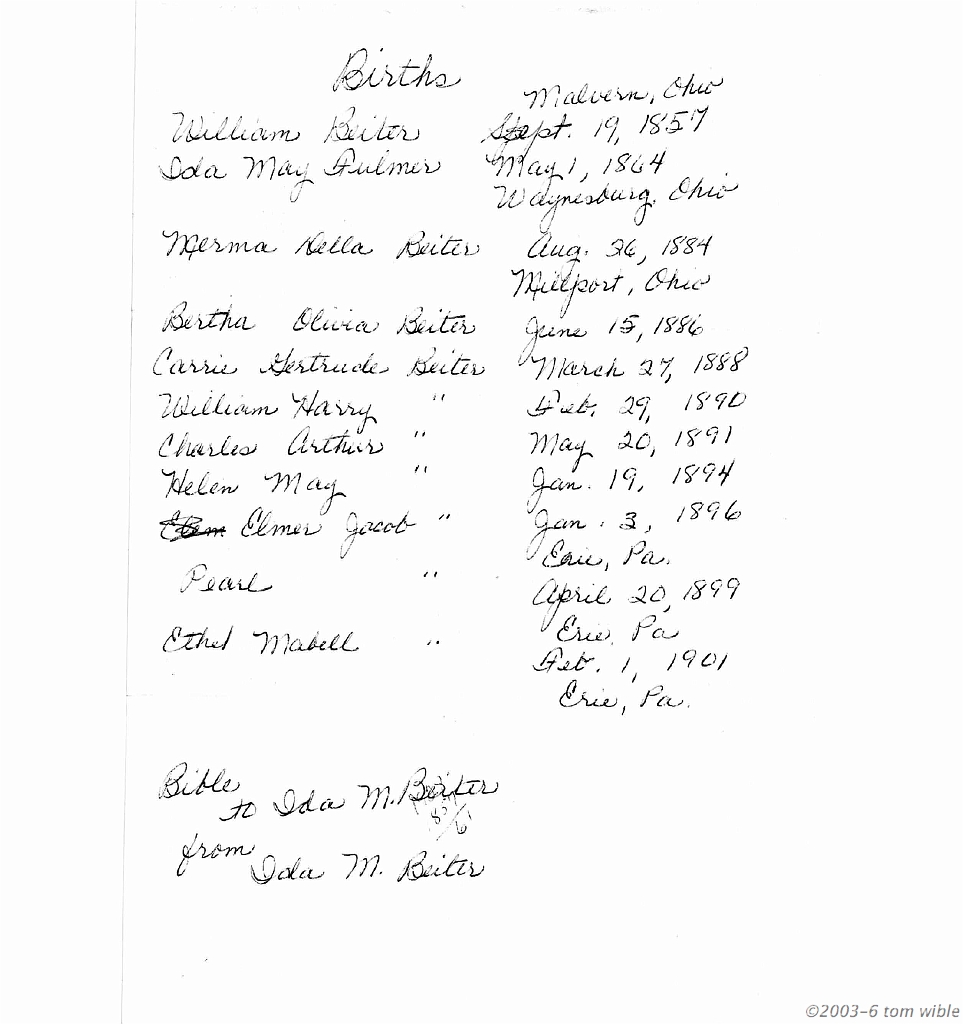 Births
Malvern, Ohio
William Beiter Sept. 19, 1857
Ida May Fulmer May 1, 1864
Waynesburg, Ohio
Merma Della Beiter Aug. 26, 1884
Millport, Ohio
Bertha Olivia Beiter June 15, 1886
Carrie Gertrude Beiter March 27, 1888
William Harry " Feb. 29, 1890
Charles Arthur " May 20, 1891
Helen May " Jan. 19, 1894
Elmer Jacob " Jan. 3, 1896
Erie, Pa.
Pearl " April 20, 1899
Erie, Pa
Ethel Mabell " Feb. 1, 1901
Erie, Pa.
Bible
to Ida M. Beiter
from
Ida M. Beiter
©2003-6 tom wible